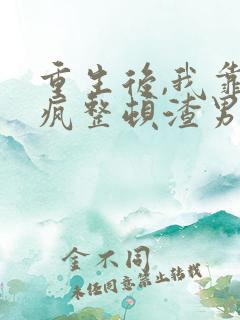 重生後,我靠
疯整頓渣男
金不同
未经同意禁止转载